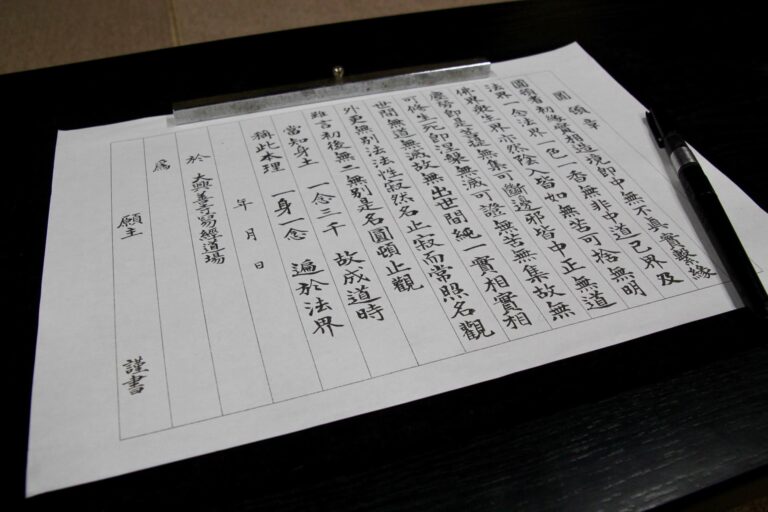 圓頓章
圓頓者初縁實相造境即中無不真實繫縁
法界一念法界一色一香無非中道己界及
佛界衆生界亦然陰入皆如無苦可捨無明
塵勞即是菩提無集可斷邊邪皆中正無道
可修生死即涅槃無滅可證無苦無集故無
世間無道無滅故無出世間純一實相實相
外更無別法法性寂然名止寂而常照名觀
雖言初後無二無別是名圓頓止觀
當知身土 一念三千 故成道時
稱此本理 一身一念 遍於法界
年 月 日
於 大興善寺寫經道場
爲
願主 謹書